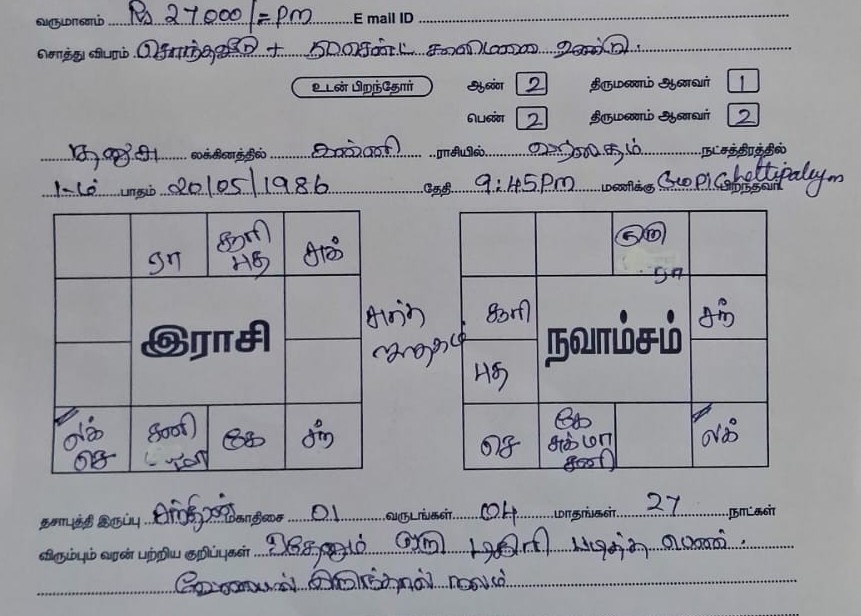 வருமானம் Rs 27000/= PM E mail ID
சொத்து விபரம் சொந்தவீடு + சென்ட் காலிமனை உண்டு.
உடன் பிறந்தோர் ஆண் 2 திருமணம் ஆனவர் 1
பெண் 2 திருமணம் ஆனவர் 2
தனுசு லக்கினத்தில் கன்னி ராசியில் அஸ்தம் நட்சத்திரத்தில்
1-ம் பாதம் 20/05/1986 தேதி 9:45PM மணிக்கு பிறந்தவர்
ரா சூரி புத சுக்
இராசி
சுத்த ஜாதகம்
லக் செ சனி கே சந்
குரு ரா
சூரி சந்
நவாம்சம்
புத
செ கே சுக் மா சனி லக்
தசாபுத்தி இருப்பு சந்திரன் மகாதிசை 01 வருடங்கள் 04 மாதங்கள் 27 நாட்கள்
விரும்பும் வரன் பற்றிய குறிப்புகள் ஏதேனும் ஒரு டிகிரி படித்த பெண்.
வேலையில் இருந்தால் நலம்